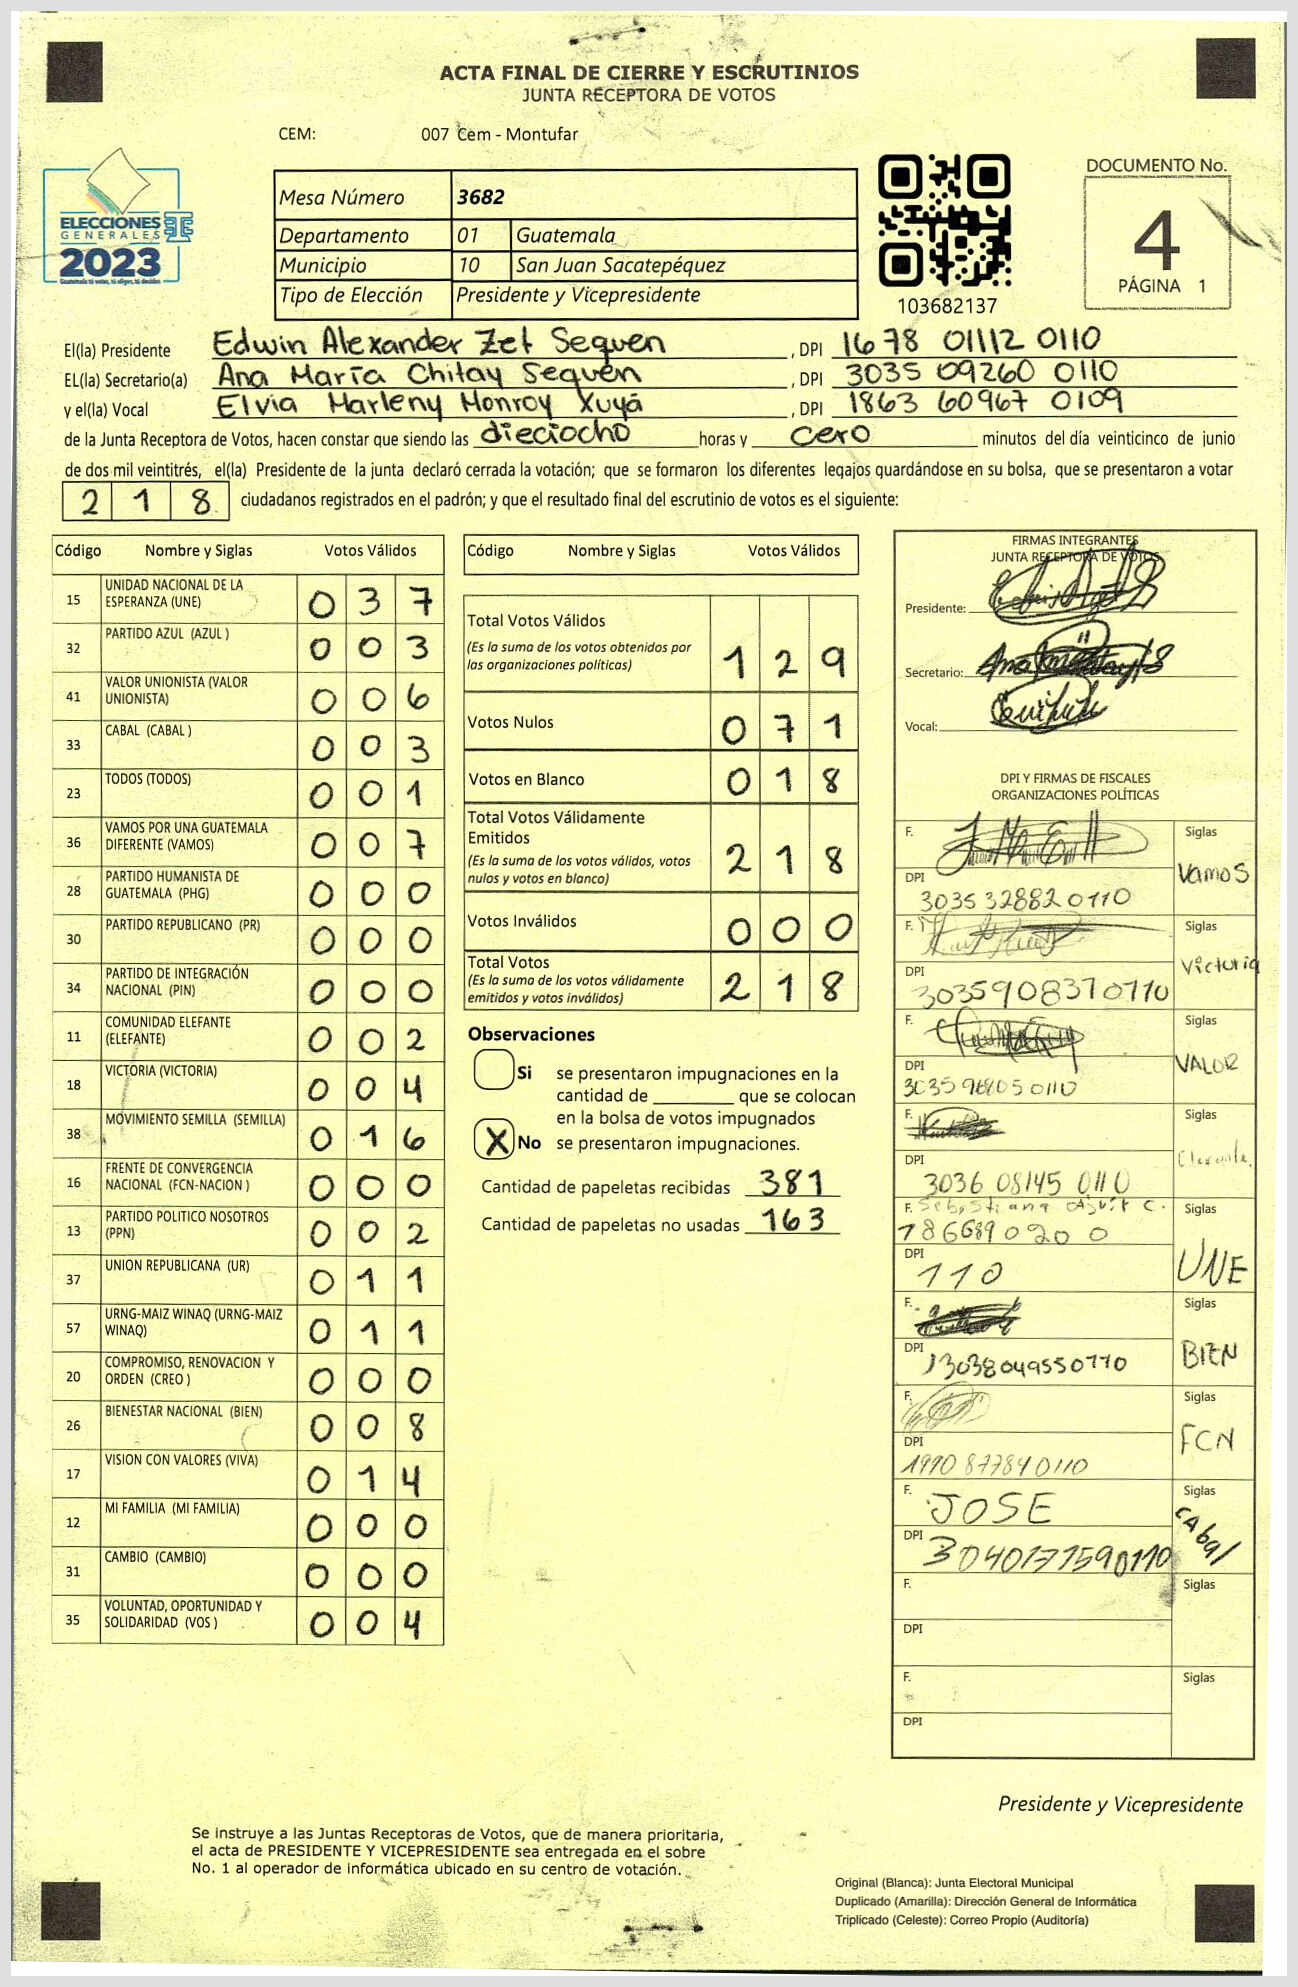 ACTA FINAL DE CIERRE Y ESCRUTINIOS
JUNTA RECEPTORA DE VOTOS
CEM: 007 Cem - Montufar
ELECCIONES
GENERALES
2023
Mesa Número 3682
Departamento 01 Guatemala
Municipio 10 San Juan Sacatepéquez
Tipo de Elección Presidente y Vicepresidente
103682137
DOCUMENTO No.
4
PÁGINA 1
El(la) Presidente Edwin Alexander Zet Sequen , DPI 1678 01112 0110
EL(la) Secretario(a) Ana María Chitay Sequén , DPI 3035 09260 0110
y el(la) Vocal Elvia Marleny Monroy Xuyá , DPI 1863 60967 0109
de la Junta Receptora de Votos, hacen constar que siendo las dieciocho horas y cero minutos del día veinticinco de junio
de dos mil veintitrés, el(la) Presidente de la junta declaró cerrada la votación; que se formaron los diferentes legajos guardándose en su bolsa, que se presentaron a votar
218 ciudadanos registrados en el padrón; y que el resultado final del escrutinio de votos es el siguiente:
Código Nombre y Siglas Votos Válidos
15 UNIDAD NACIONAL DE LA ESPERANZA (UNE) 0 3 7
32 PARTIDO AZUL (AZUL ) 0 0 3
41 VALOR UNIONISTA (VALOR UNIONISTA) 0 0 6
33 CABAL (CABAL ) 0 0 3
23 TODOS (TODOS) 0 0 1
36 VAMOS POR UNA GUATEMALA DIFERENTE (VAMOS) 0 0 7
28 PARTIDO HUMANISTA DE GUATEMALA (PHG) 0 0 0
30 PARTIDO REPUBLICANO (PR) 0 0 0
34 PARTIDO DE INTEGRACIÓN NACIONAL (PIN) 0 0 0
11 COMUNIDAD ELEFANTE (ELEFANTE) 0 0 2
18 VICTORIA (VICTORIA) 0 0 4
38 MOVIMIENTO SEMILLA (SEMILLA) 0 1 6
16 FRENTE DE CONVERGENCIA NACIONAL (FCN-NACION ) 0 0 0
13 PARTIDO POLITICO NOSOTROS (PPN) 0 0 2
37 UNION REPUBLICANA (UR) 0 1 1
57 URNG-MAIZ WINAQ (URNG-MAIZ WINAQ) 0 1 1
20 COMPROMISO, RENOVACION Y ORDEN (CREO ) 0 0 0
26 BIENESTAR NACIONAL (BIEN) 0 0 8
17 VISION CON VALORES (VIVA) 0 1 4
12 MI FAMILIA (MI FAMILIA) 0 0 0
31 CAMBIO (CAMBIO) 0 0 0
35 VOLUNTAD, OPORTUNIDAD Y SOLIDARIDAD (VOS ) 0 0 4
Código Nombre y Siglas Votos Válidos
Total Votos Válidos 1 2 9
(Es la suma de los votos obtenidos por
las organizaciones políticas)
Votos Nulos 0 7 1
Votos en Blanco 0 1 8
Total Votos Válidamente
Emitidos 2 1 8
(Es la suma de los votos válidos, votos
nulos y votos en blanco)
Votos Inválidos 0 0 0
Total Votos 2 1 8
(Es la suma de los votos válidamente
emitidos y votos inválidos)
Observaciones
Si se presentaron impugnaciones en la
cantidad de ________ que se colocan
en la bolsa de votos impugnados
X No se presentaron impugnaciones.
Cantidad de papeletas recibidas 381
Cantidad de papeletas no usadas 163
FIRMAS INTEGRANTES
JUNTA RECEPTORA DE VOTOS
Presidente:
Secretario:
Vocal:
DPI Y FIRMAS DE FISCALES
ORGANIZACIONES POLÍTICAS
F. Siglas
Vamos
DPI
3035 32882 0110
F. Siglas
Victoria
DPI
3035908370110
F. Siglas
VALOR
DPI
F. Siglas
DPI
3036 08145 0110
F. Siglas
UNE
DPI
110
F. Siglas
BIEN
DPI
F. Siglas
FCN
DPI
1990 87784 0110
F. JOSE Siglas
CAbal
DPI
3040171590110
F. Siglas
DPI
F. Siglas
DPI
Presidente y Vicepresidente
Se instruye a las Juntas Receptoras de Votos, que de manera prioritaria,
el acta de PRESIDENTE Y VICEPRESIDENTE sea entregada en el sobre
No. 1 al operador de informática ubicado en su centro de votación.
Original (Blanca): Junta Electoral Municipal
Duplicado (Amarilla): Dirección General de Informática
Triplicado (Celeste): Correo Propio (Auditoría)